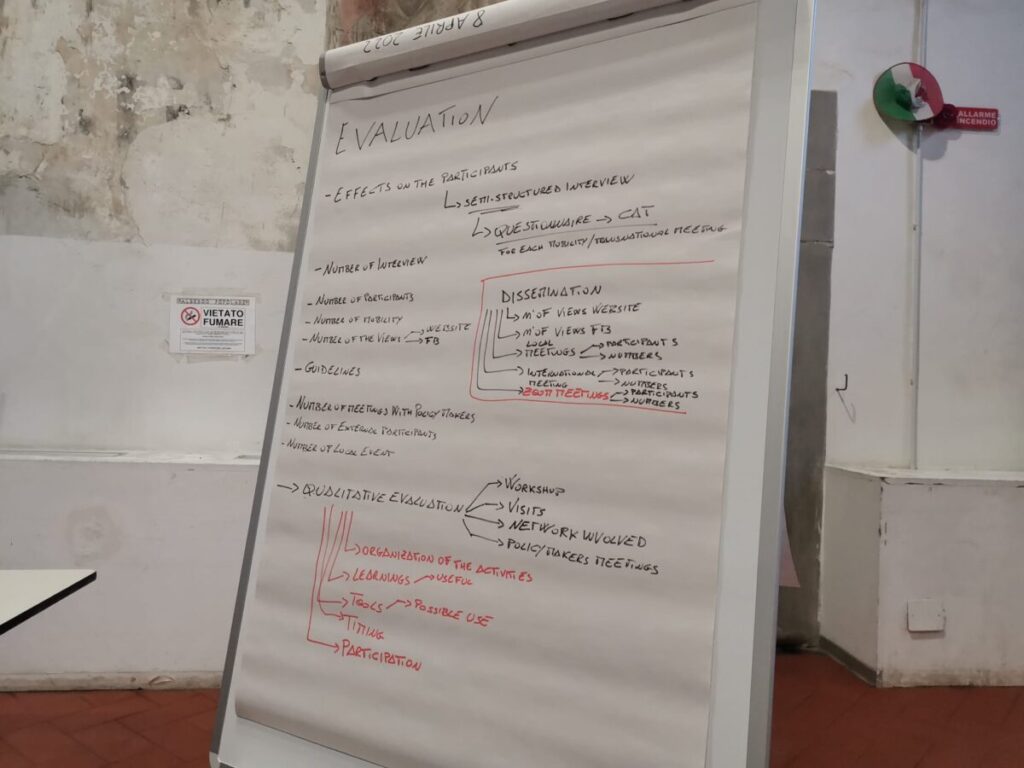 8 APRILE 2022
EVALUATION
- EFFECTS ON THE PARTICIPANTS
↳ SEMI-STRUCTURED INTERVIEW
↳ QUESTIONNAIRE → CAT
FOR EACH MOBILITY/TRANSNATIONAL MEETING
- NUMBER OF INTERVIEW
- NUMBER OF PARTICIPANTS
- NUMBER OF MOBILITY
- NUMBER OF THE VIEWS → WEBSITE
→ FB
- GUIDELINES
- NUMBER OF MEETINGS WITH POLICY MAKERS
- NUMBER OF EXTERNAL PARTICIPANTS
- NUMBER OF LOCAL EVENT
DISSEMINATION
→ N° OF VIEWS WEBSITE
→ N° OF VIEWS FB
LOCAL
→ MEETINGS → PARTICIPANTS
→ NUMBERS
→ INTERNATIONAL → PARTICIPANTS
MEETING → NUMBERS
→ ZOOM MEETINGS → PARTICIPANTS
→ NUMBERS
→ QUALITATIVE EVALUATION
→ WORKSHOP
→ VISITS
→ NETWORK INVOLVED
→ POLICYMAKERS MEETINGS
→ ORGANIZATION OF THE ACTIVITIES
→ LEARNINGS → USEFUL
→ TOOLS → POSSIBLE USE
→ TIMING
→ PARTICIPATION
VIETATO
FUMARE
ALLARME
INCENDIO